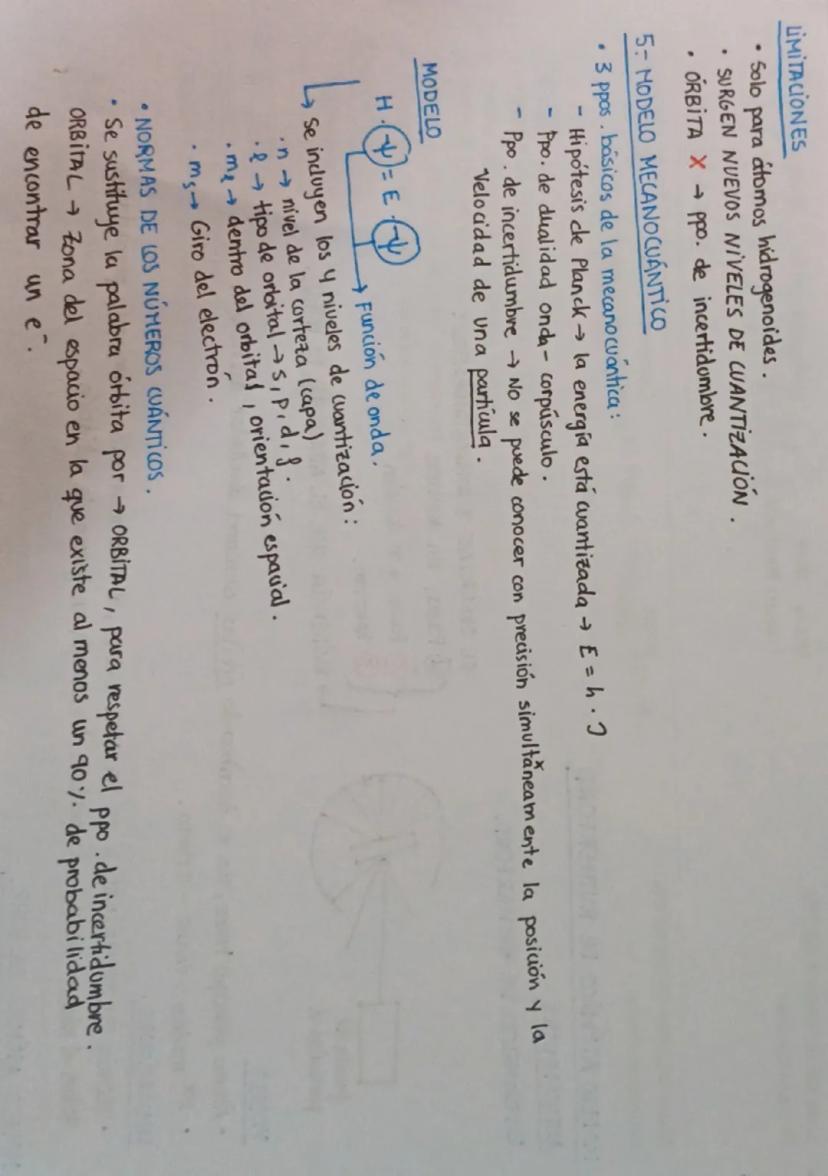 LIMITACIONES
• Solo para átomos hidrogenoides.
• SURGEN NUEVOS NIVELES DE CUANTIZACIÓN.
• ÓRBITA X → ppo. de incertidumbre.
5.- MODELO MECANOCUÁNTICO
• 3 ppos. básicos de la mecanocuántica:
- Hipótesis de Planck → la energía está cuantizada → E = h · ν
- Ppo. de dualidad onda-corpúsculo.
- Ppo. de incertidumbre → No se puede conocer con precisión simultáneamente la posición y la
velocidad de una partícula.
MODELO
H · Ψ = E · Ψ
→ Función de onda.
↳ Se incluyen los 4 niveles de cuantización:
• n → nivel de la corteza (capa)
• ℓ → tipo de orbital → s, p, d, f.
• mℓ → dentro del orbital, orientación espacial.
• ms → Giro del electrón.
• NORMAS DE LOS NÚMEROS CUÁNTICOS.
• Se sustituye la palabra órbita por → ORBITAL, para respetar el ppo. de incertidumbre.
ORBITAL → Zona del espacio en la que existe al menos un 90% de probabilidad
de encontrar un e⁻.